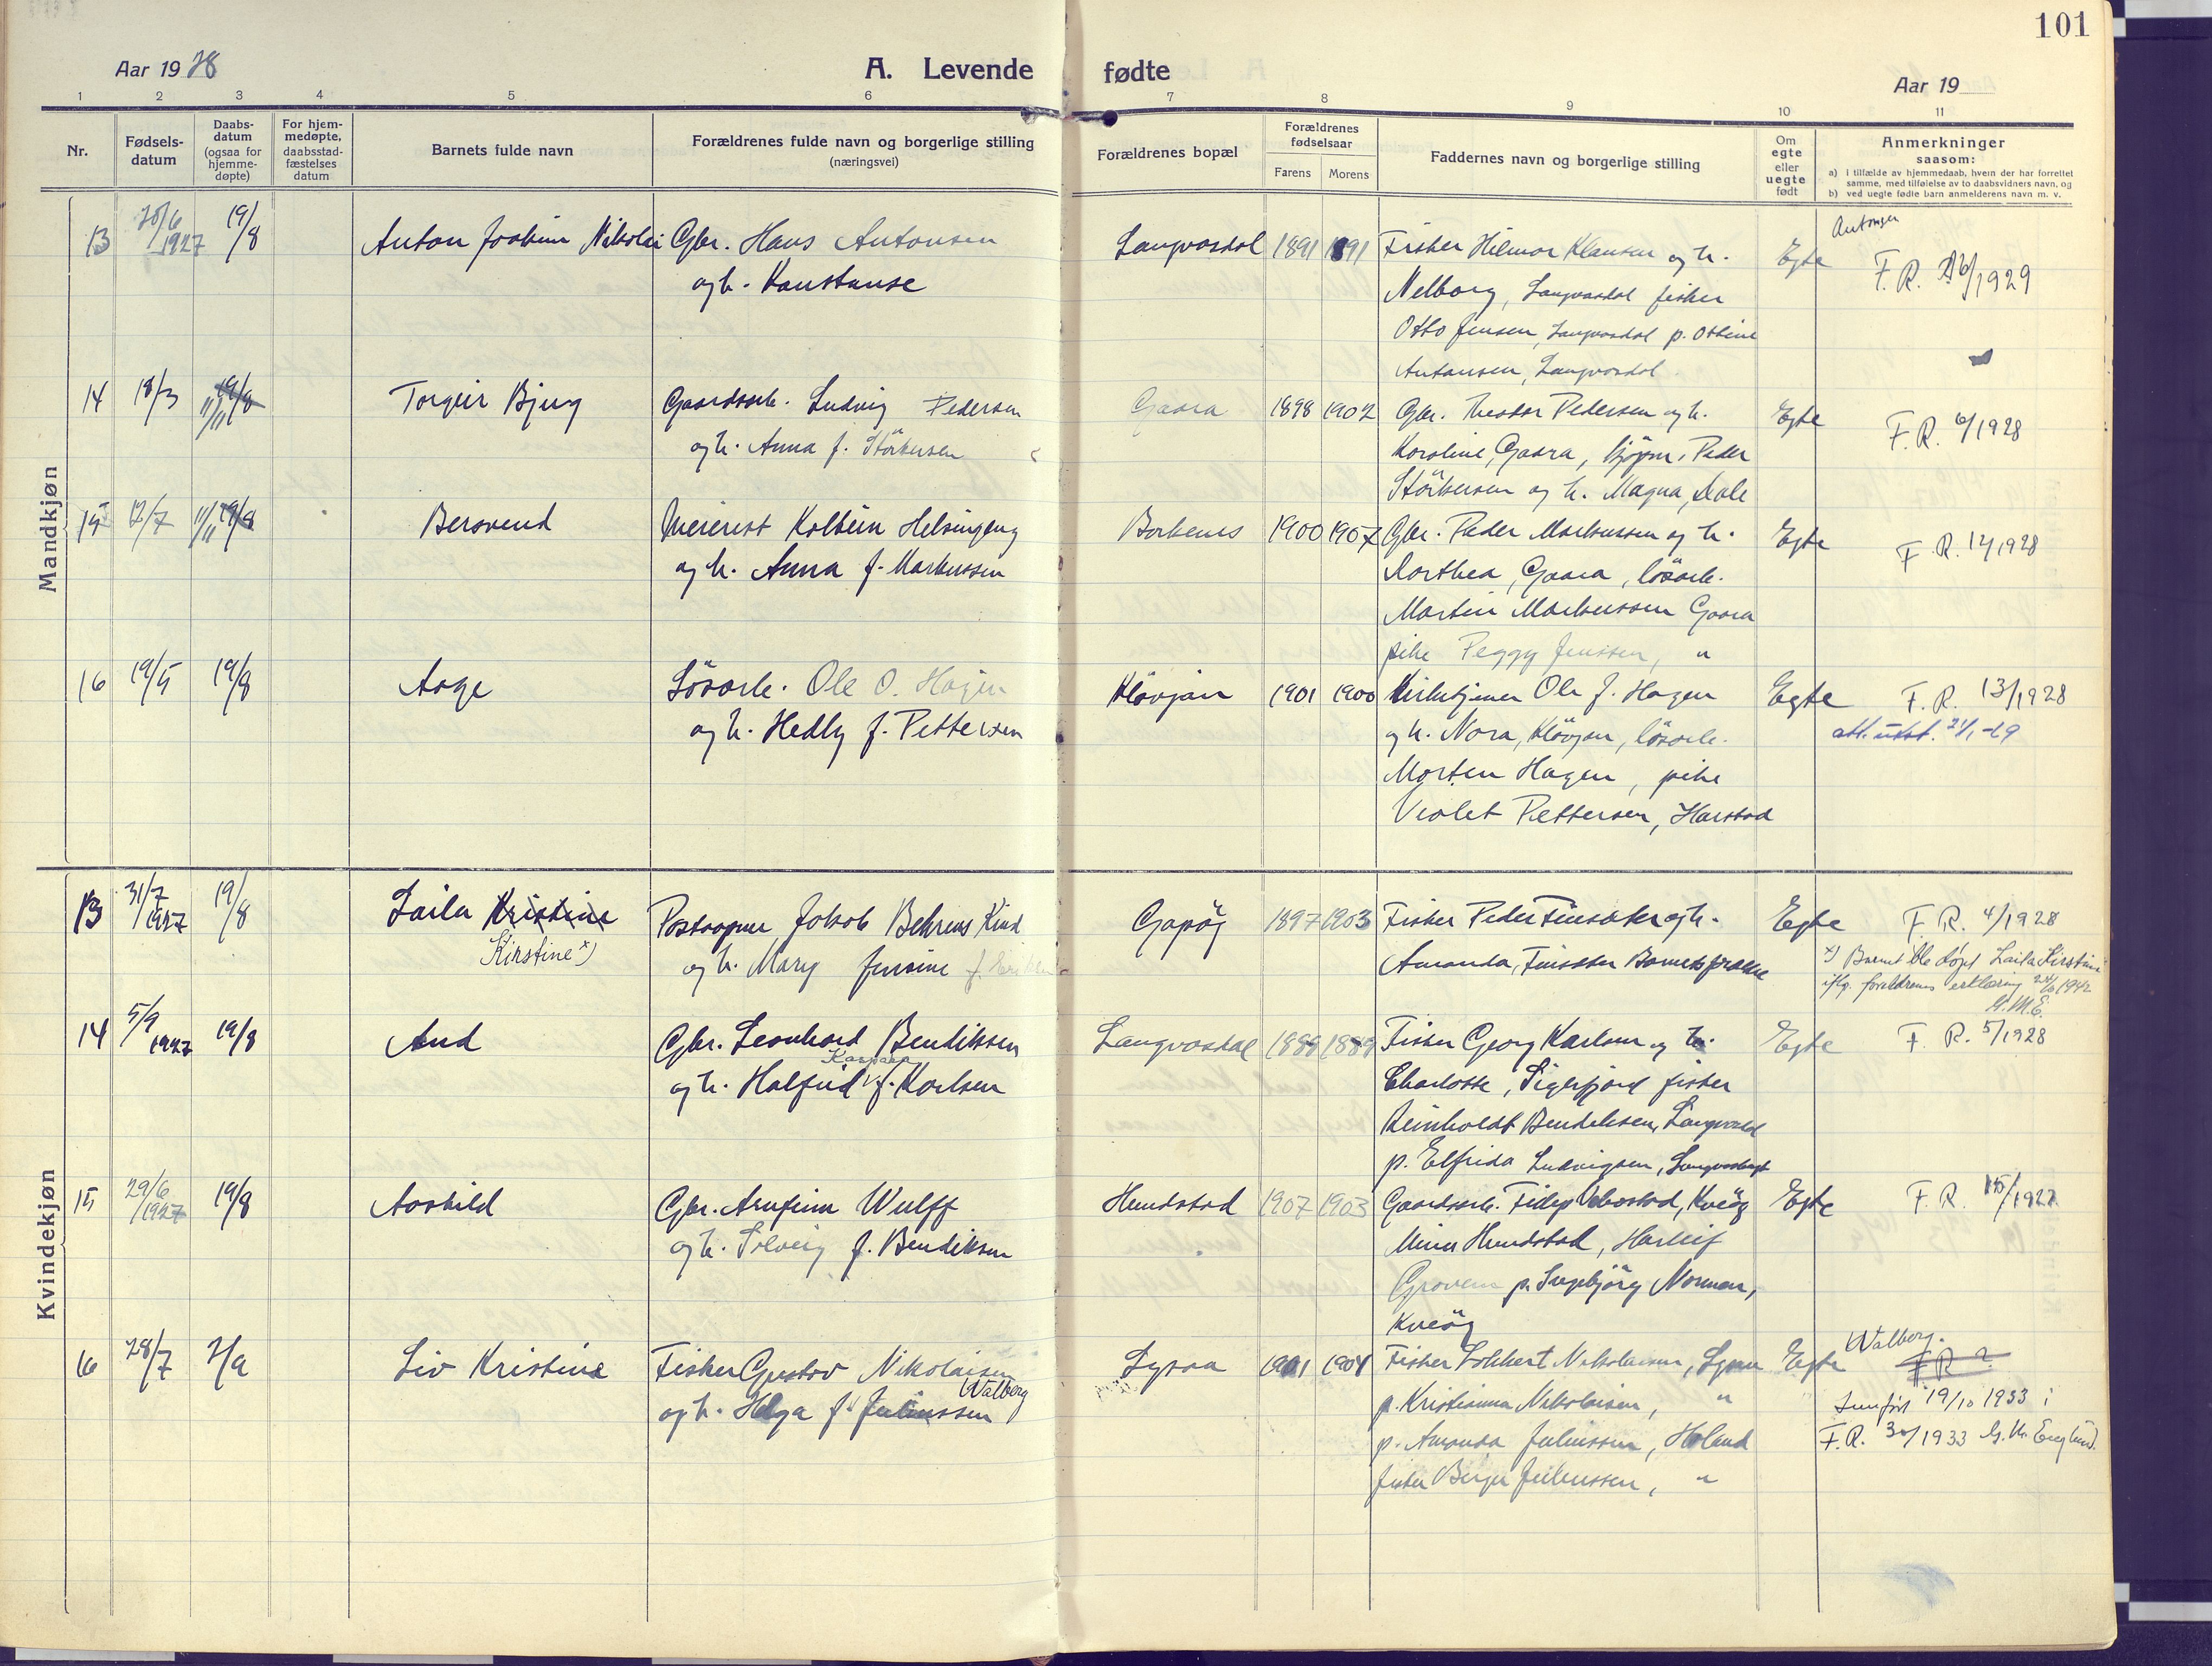 101
Aar 19 28
A. Levende fødte
Aar 19
1 2 3 4 5 6 7 8 9 10 11
Nr.
Fødsels-
datum
Daabs-
datum
(ogsaa for
hjemme-
døpte)
For hjem-
medøpte,
daabsstad-
fæstelses
datum
Barnets fulde navn
Forældrenes fulde navn og borgerlige stilling
(næringsvei)
Forældrenes bopæl
Forældrenes
fødselsaar
Farens Morens
Faddernes navn og borgerlige stilling
Om
egte
eller
uegte
født
Anmerkninger
saasom:
a) i tilfælde av hjemmedaab, hvem der har forrettet
samme, med tilføielse av to daabsvidners navn, og
b) ved uegte fødte barn anmelderens navn m. v.
Mandkjøn
13 1927 19/8 Anton Joakim Nikolai
Gbr. Hans Antonsen
og h. Konstanse
Langvasdal 1891 1891
Fisker Hilmor Klausen og h.
Nelborg, Langvasdal fisker
Otto Jensen, Langvasdal p. Ottine
Antonsen, Langvasdal
Egte
Antonsen
F. R. /1929
14 18/3 19/8 11/11 Torgeir Bjug
Gaardsarb. Ludvig Pedersen
og h. Anna f. Störkersen
Gaara 1898 1902
Gbr. Theodor Pedersen og h.
Karoline, Gaara, Peder
Störkersen og h. Magna, Dale
Egte
F. R. 6/1928
15 12/7 11/11 19/8 Bersvend
Meierist Kolbein Helsingeng
og h. Anna f. Markussen
Borkenes 1900 1907
Gbr. Peder Markussen og h.
Dorthea, Gaara, lösarb.
Martin Markussen Gaara
pike Peggy Jenssen, "
Egte
F. R. 12/1928
16 19/5 19/8 Aage
Lösarb. Ole O. Hagen
og h. Hedly f. Pettersen
Klövjan 1901 1900
Kirketjener Ole J. Hagen
og h. Nora, Klövjan, lösarb.
Morten Hagen, pike
Violet Pettersen, Harstad
Egte
F. R. 13/1928
att. utst.
Kvindekjøn
13 31/7 1927 19/8 Laila Kristine
Kirstine x)
Postaapner Jakob Behrens Kind
og h. Mary Jensine f.
Gapöy 1897 1903
Fisker Peder Finsæter og h.
Amanda, Finsæter
Egte
F. R. 4/1928
x) Barnet ble döpt Laila Kirstine
iflg. foreldrenes erklæring 24/6 1942
14 5/9 1927 19/8 Aud
Gbr. Leonhard Bendiksen
Kaspara
og h. Halfrid f. Karlsen
Langvasdal 1888 1889
Fisker Georg Karlsen og h.
Charlotte, Sigerfjord fisker
Reinholdt Bendiksen, Langvasdal
p. Elfrida Ludvigsen,
Egte
F. R. 5/1928
15 29/6 1927 19/8 Aashild
Gbr. Arnfinn Wulff
og h. Solveig f. Bendiksen
Hundstad 1907 1903
Gaardsarb. Kveöy
Hundstad, Harleif
Groven p. Ingebjörg Norman,
Kveöy
Egte
F. R. 15/1927
16 28/7 2/9 Liv Kristine
Fisker Gustav Nikolaisen
Walberg
og h. Helga f. Juliussen
Lysaa 1901 1904
Fisker Nikolaisen, Lysaa
p. Kristianna Nikolaisen, "
p. Amanda Juliussen, Höland
fisker Birger Juliussen, "
Egte
Walberg.
F R ?
Innfört 19/10 1933 i
F. R. 30/1933